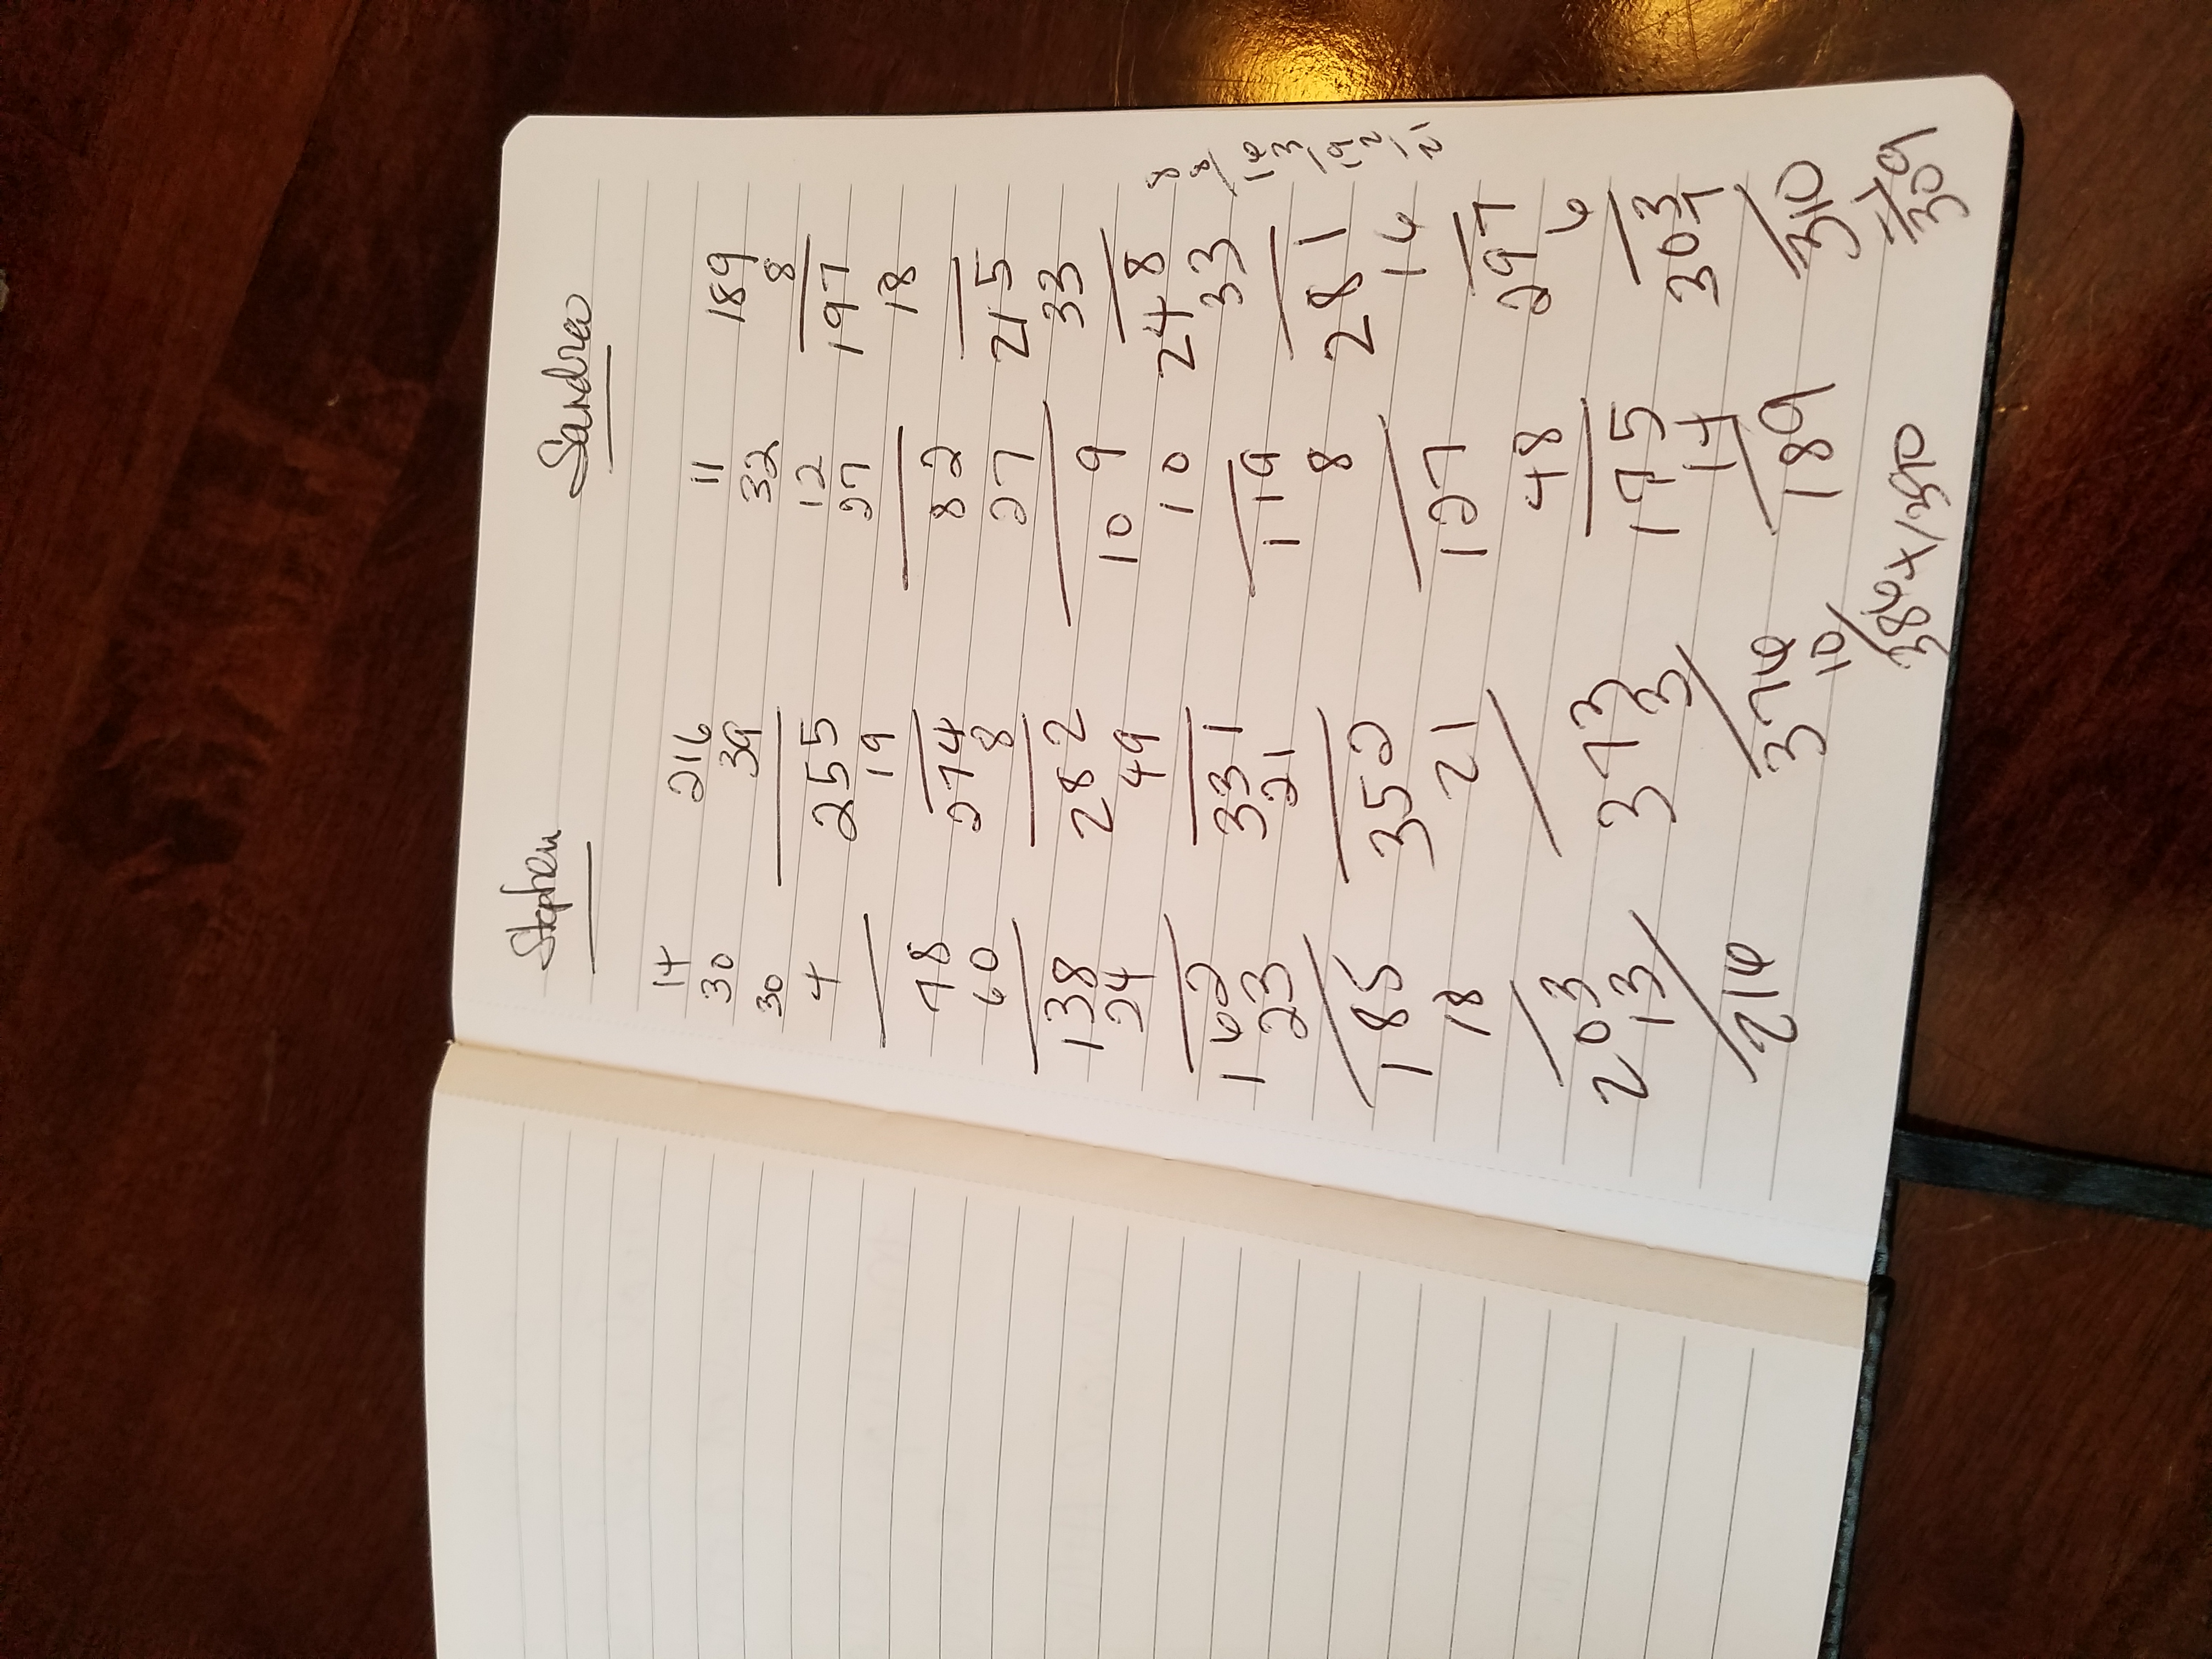 Stephen
14
30
30
4
78
60
138
24
162
23
185
18
203
13
216
216
39
255
19
274
8
282
49
331
21
352
21
373
3
376
10
386 + / 390
Sandra
11
32
12
27
82
27
109
10
119
8
127
48
175
14
189
189
8
197
18
215
33
248
33
281
16
297
6
303
7
310
309
8
8
16
3
19
2
21